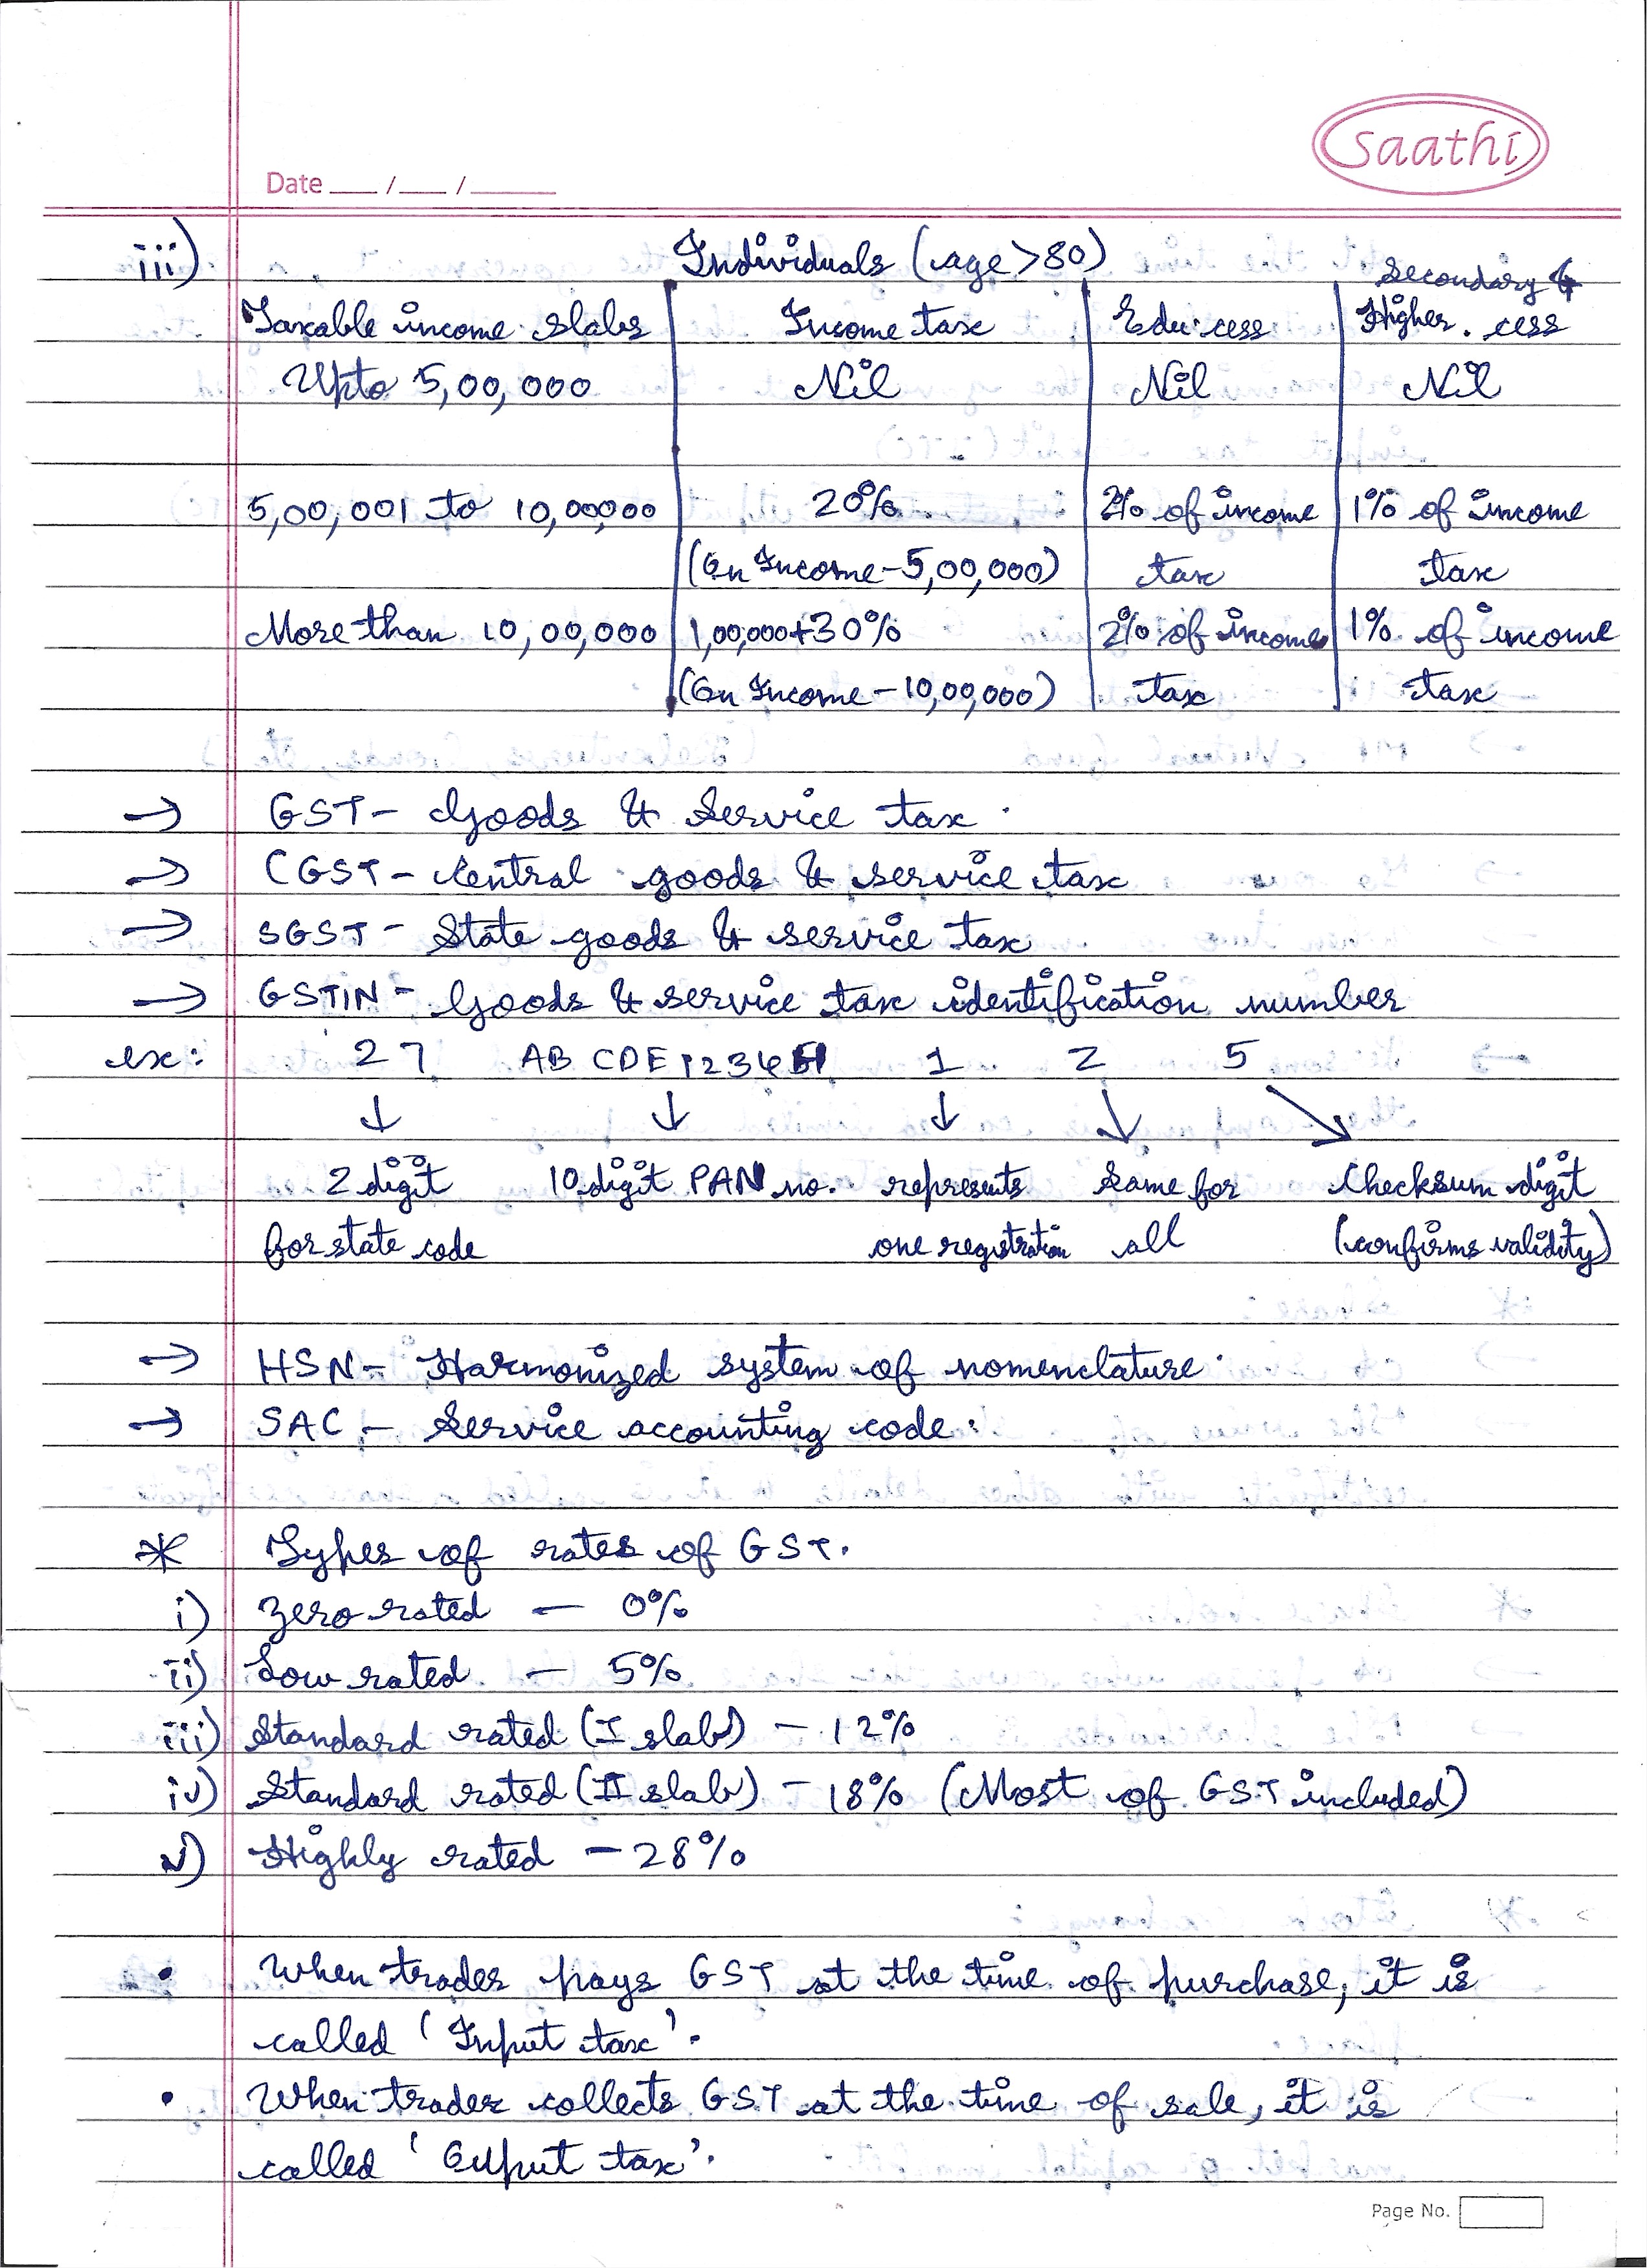 saathi
Date ___ /___ /______
iii) Individuals (age>80)
Taxable income slabs Income tax Edu. cess Secondary & Higher. cess
Upto 5,00,000 Nil Nil Nil
5,00,001 to 10,00,000 20% 2% of income 1% of income
(On Income-5,00,000) tax tax
More than 10,00,000 1,00,000+30% 2% of income 1% of income
(On Income-10,00,000) tax tax
→ GST- Goods & Service tax.
→ CGST- Central goods & service tax
→ SGST- State goods & service tax
→ GSTIN- Goods & service tax identification number
ex: 27 ABCDE1234H 1 Z 5
↓ ↓ ↓ ↘ ↘
2 digit 10 digit PAN no. represents Same for Checksum digit
for state code one registration all (confirms validity)
→ HSN- Harmonized system of nomenclature.
→ SAC- Service accounting code.
* Types of rates of GST.
i) Zero rated - 0%
ii) Low rated - 5%
iii) Standard rated (I slab) - 12%
iv) Standard rated (II slab) - 18% (Most of GST included)
v) Highly rated - 28%
• When trader pays GST at the time of purchase, it is
called 'Input tax'.
• When trader collects GST at the time of sale, it is
called 'Output tax'.
Page No.